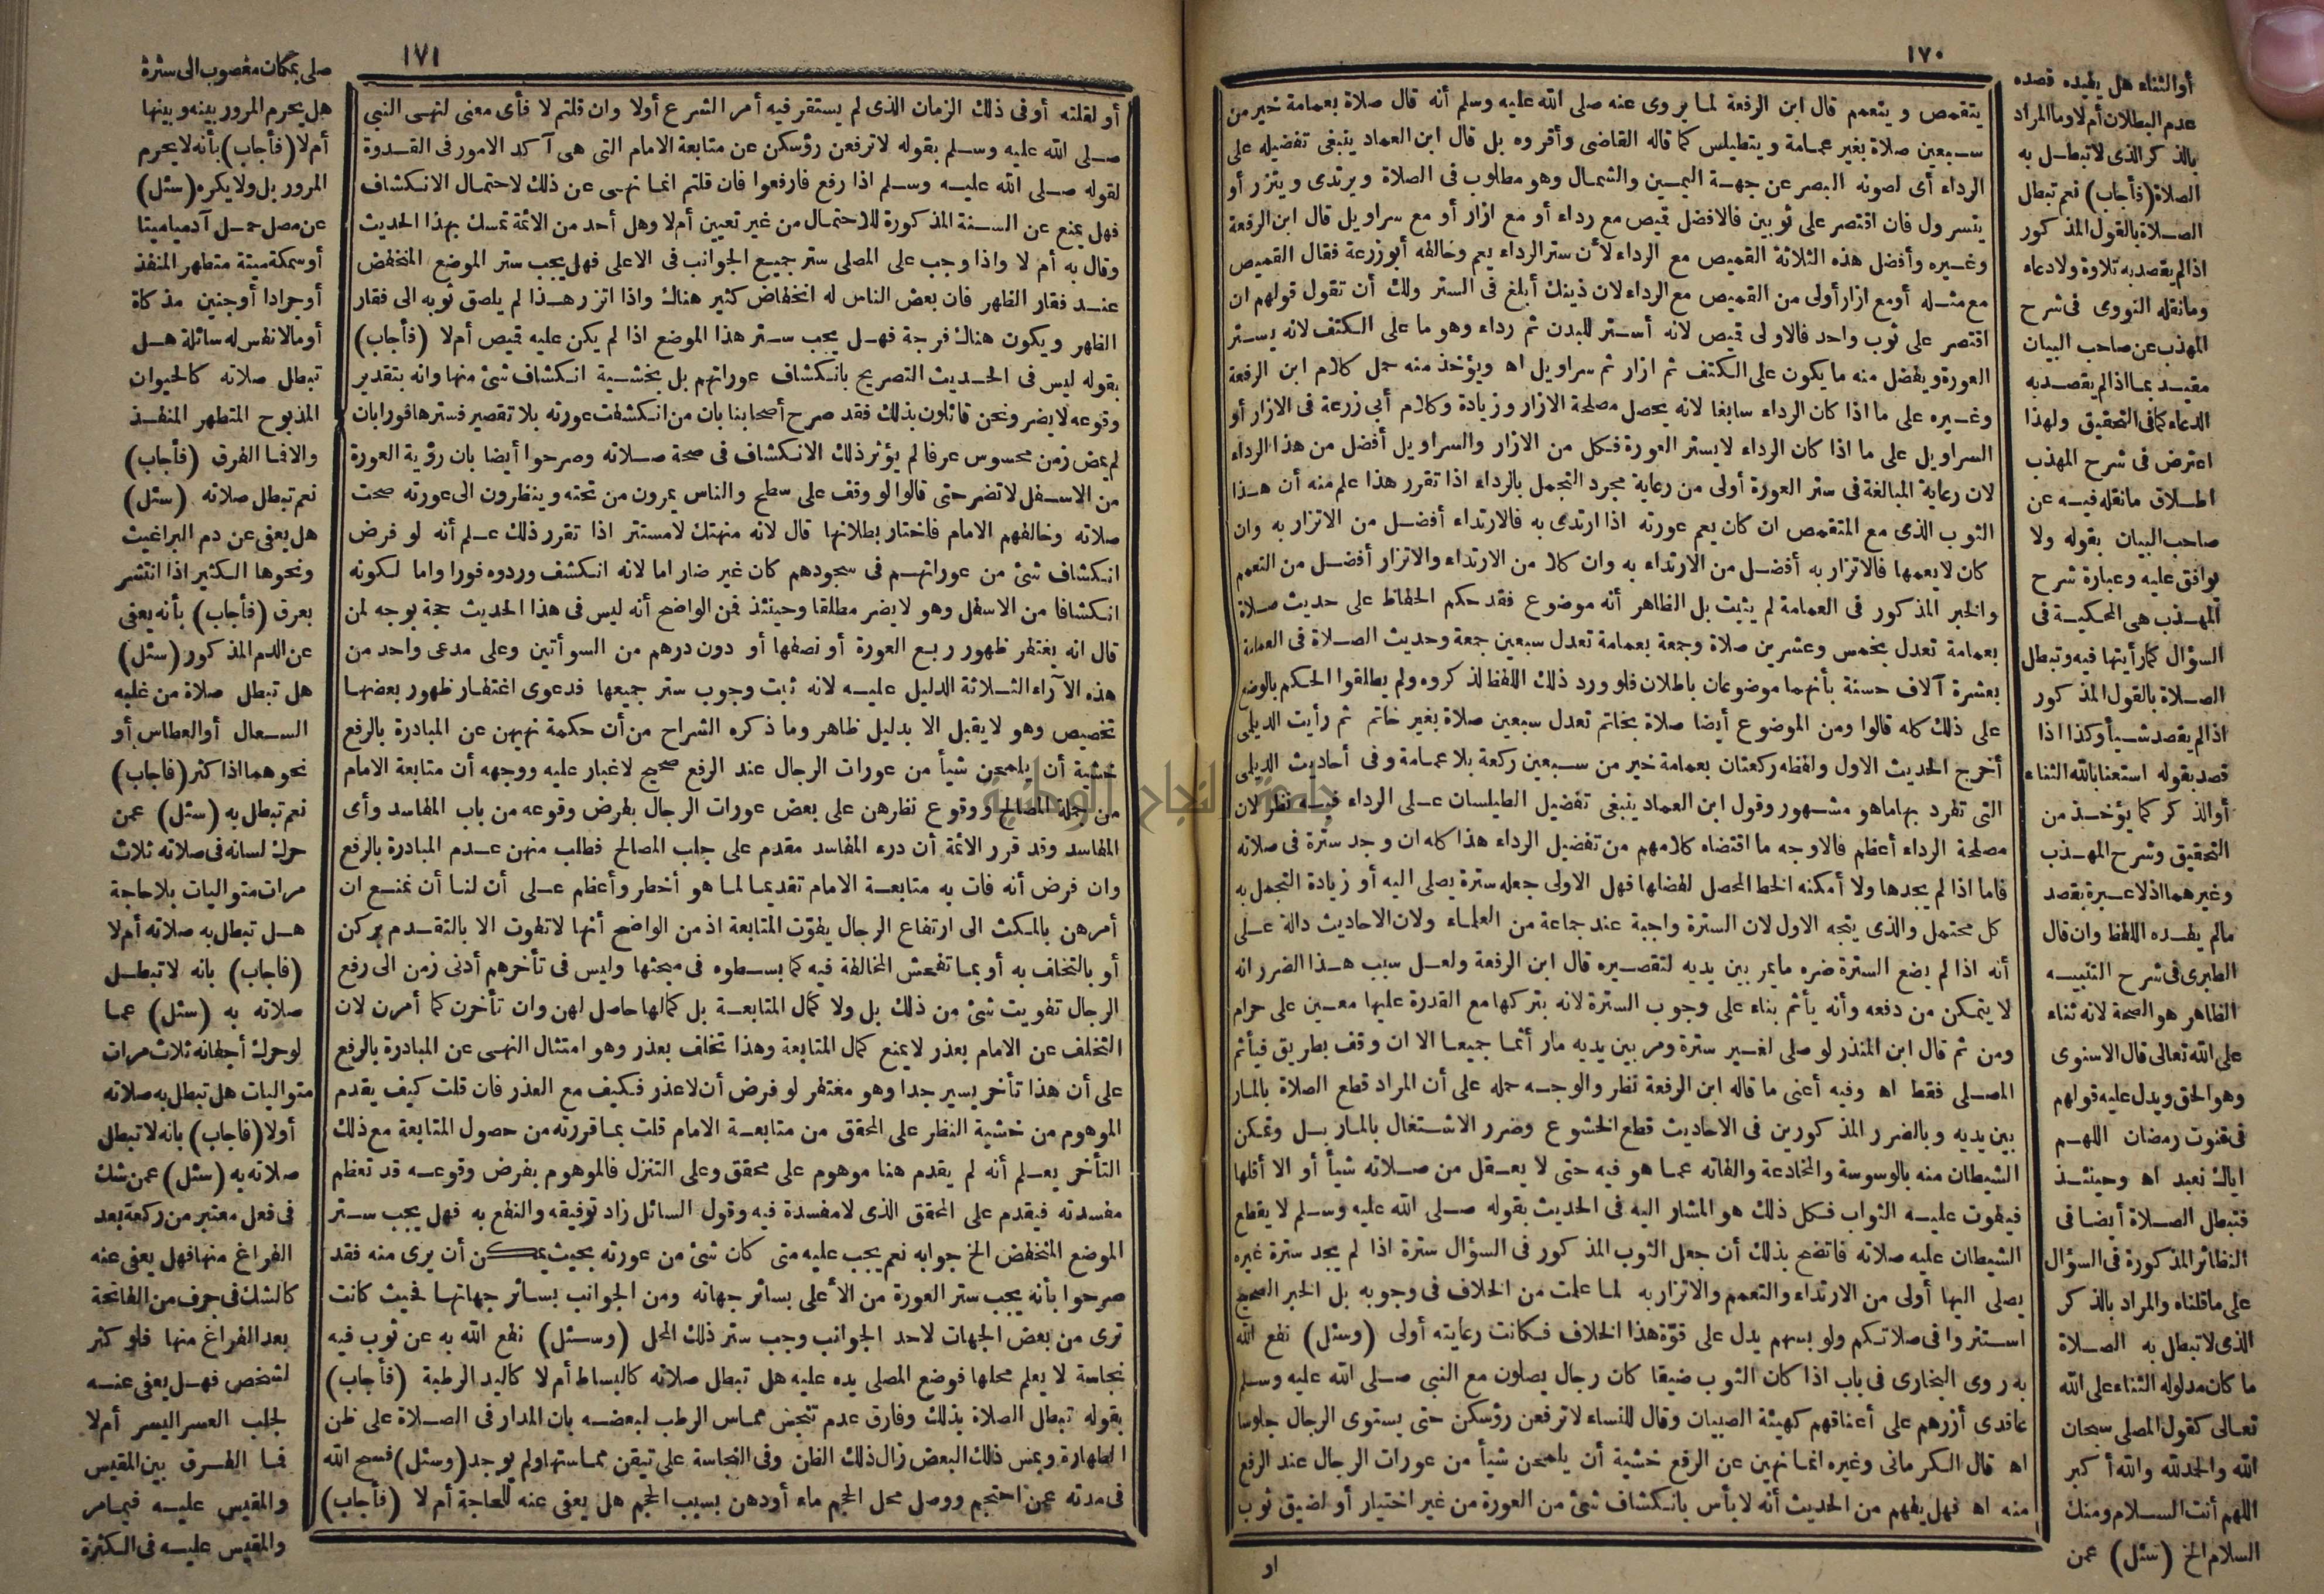 ١٧٠
يتقمص ويتعمم قال ابن الرفعة لما يروى عنه صلى الله عليه وسلم أنه قال صلاة بعمامة خير من
سبعين صلاة بغير عمامة ويتطيلس كما قاله القاضى وأقروه بل قال ابن العماد ينبغى تفضيله على
الرداء أى لصونه البصر عن جهة اليمين والشمال وهو مطلوب فى الصلاة ويرتدى ويتزر أو
يتسرول فان اقتصر على ثوبين فالافضل قيص مع رداء أو مع ازار أو مع سراويل قال ابن الرفعة
وغيره وأفضل هذه الثلاثة القميص مع الرداء لأن ستر الرداء يعم وخالفه أبو زرعة فقال القميص
مع مثله أو مع ازار أولى من القميص مع الرداء لان ذينك أبلغ فى الستر ولك أن تقول قولهم ان
اقتصر على ثوب واحد فالاولى قيص لانه أستر للبدن ثم رداء وهو ما على الكتف لانه يستر
العورة ويفضل منه ما يكون على الكتف ثم ازار ثم سراويل اه ويؤخذ منه حمل كلام ابن الرفعة
وغيره على ما اذا كان الرداء سابغا لانه يحصل مصلحة الازار وزيادة وكلام أبى زرعة فى الازار أو
السراويل على ما اذا كان الرداء لا يستر العورة فكل من الازار والسراويل أفضل من هذا الرداء
لان رعاية المبالغة فى ستر العورة أولى من رعاية مجرد التجمل بالرداء اذا تقرر هذا علم منه أن هذا
الثوب الذى مع المتقمص ان كان يعم عورته اذا ارتدى به فالارتداء أفضل من الاتزار به وان
كان لا يعمها فالاتزار به أفضل من الارتداء به وان كلا من الارتداء والاتزار أفضل من التعمم
والخبر المذكور فى العمامة لم يثبت بل الظاهر أنه موضوع فقد حكم الحفاظ على حديث صلاة
بعمامة تعدل بخمس وعشرين صلاة وجمعة بعمامة تعدل سبعين جمعة وحديث الصلاة فى العمامة
بعشرة آلاف حسنة بأنهما موضوعان باطلان فلو ورد ذلك اللفظ لذكروه ولم يطلقوا الحكم بالوضع
على ذلك كله قالوا ومن الموضوع أيضا صلاة بخاتم تعدل سبعين صلاة بغير خاتم ثم رأيت الديلمى
أخرج الحديث الاول ولفظه ركعتان بعمامة خير من سبعين ركعة بلا عمامة وفى أحاديث الديلمى
التى تفرد بها ما هو مشهور وقول ابن العماد ينبغى تفضيل الطيلسان على الرداء فيه نظر لان
مصلحة الرداء أعظم فالاوجه ما اقتضاه كلامهم من تفضيل الرداء هذا كله ان وجد سترة فى صلاته
فاما اذا لم يجدها ولا أمكنه الخط المحصل لفضلها فهل الاولى جعله سترة يصلى اليه أو زيادة التجمل به
كل محتمل والذى يتجه الاول لان السترة واجبة عند جماعة من العلماء ولان الاحاديث دالة على
أنه اذا لم يضع السترة ضره ما يمر بين يديه لتقصيره قال ابن الرفعة ولعل سبب هذا الضرر انه
لا يتمكن من دفعه وأنه يأثم بناء على وجوب السترة لانه بتركها مع القدرة عليها معين على حرام
ومن ثم قال ابن المنذر لو صلى لغير سترة ومر بين يديه مار أثما جميعا الا ان وقف بطريق فيأثم
المصلى فقط اه وفيه أعنى ما قاله ابن الرفعة نظر والوجه حمله على أن المراد قطع الصلاة بالمار
بين يديه وبالضرر المذكورين فى الاحاديث قطع الخشوع وضرر الاشتغال بالمار بل وتمكن
الشيطان منه بالوسوسة والمخادعة والفاته عما هو فيه حتى لا يعقل من صلاته شيأ أو الا أقلها
فيفوت عليه الثواب فكل ذلك هو المشار اليه فى الحديث بقوله صلى الله عليه وسلم لا يقطع
الشيطان عليه صلاته فاتضح بذلك أن جعل الثوب المذكور فى السؤال سترة اذا لم يجد سترة غيره
يصلى اليها أولى من الارتداء والتعمم والاتزار به لما علمت من الخلاف فى وجوبه بل الخبر الصحيح
استتروا فى صلاتكم ولو بسهم يدل على قوّة هذا الخلاف فكانت رعايته أولى (وسئل) نفع الله
به روى البخارى فى باب اذا كان الثوب ضيقا كان رجال يصلون مع النبى صلى الله عليه وسلم
عاقدى أزرهم على أعناقهم كهيئة الصبيان وقال للنساء لا ترفعن رؤسكن حتى يستوى الرجال جلوسا
اه قال الكرمانى وغيره انما نهين عن الرفع خشية أن يلمحن شيأ من عورات الرجال عند الرفع
منه اه فهل يفهم من الحديث أنه لا بأس بانكشاف شئ من العورة من غير اختيار أو لضيق ثوب
او
أو الثناء هل يفيده قصده
عدم البطلان أم لا وما المراد
بالذكر الذى لا تبطل به
الصلاة (فأجاب) نعم تبطل
الصلاة بالقول المذكور
اذا لم يقصد به تلاوة ولا دعاء
وما نقله النووى فى شرح
المهذب عن صاحب البيان
مقيد بما اذا لم يقصد به
الدعاء كما فى التحقيق ولهذا
اعترض فى شرح المهذب
اطلاق ما نقله فيه عن
صاحب البيان بقوله ولا
يوافق عليه وعبارة شرح
المهذب هى المحكية فى
السؤال كما رأيتها فيه وتبطل
الصلاة بالقول المذكور
اذا لم يقصد شيأ وكذا اذا
قصد بقوله استعنا بالله الثناء
أو الذكر كما يؤخذ من
التحقيق وشرح المهذب
وغيرهما اذ لا عبرة بقصد
ما لم يفده اللفظ وان قال
الطبرى فى شرح التنبيه
الظاهر هو الصحة لانه ثناء
على الله تعالى قال الاسنوى
وهو الحق ويدل عليه قولهم
فى قنوت رمضان اللهم
اياك نعبد اه وحينئذ
فتبطل الصلاة أيضا فى
النظائر المذكورة فى السؤال
على ما قلناه والمراد بالذكر
الذى لا تبطل به الصلاة
ما كان مدلوله الثناء على الله
تعالى كقول المصلى سبحان
الله والحمد لله والله أكبر
اللهم أنت السلام ومنك
السلام الخ (سئل) عمن
١٧١
أو لغلته أو فى ذلك الزمان الذى لم يستقر فيه أمر الشرع أولا وان قلتم لا فأى معنى لنهى النبى
صلى الله عليه وسلم بقوله لا ترفعن رؤسكن عن متابعة الامام التى هى آكد الامور فى القدوة
لقوله صلى الله عليه وسلم اذا رفع فارفعوا فان قلتم انما نهى عن ذلك لاحتمال الانكشاف
فهل يمنع عن السنة المذكورة للاحتمال من غير تعيين أم لا وهل أحد من الائمة تمسك بهذا الحديث
وقال به أم لا واذا وجب على المصلى ستر جميع الجوانب فى الاعلى فهل يجب ستر الموضع المنخفض
عند فقار الظهر فان بعض الناس له انخفاض كثير هناك واذا اتزر هذا لم يلصق ثوبه الى فقار
الظهر ويكون هناك فرجة فهل يجب ستر هذا الموضع اذا لم يكن عليه قيص أم لا (فأجاب)
بقوله ليس فى الحديث التصريح بانكشاف عوراتهم بل بخشية انكشاف شئ منها وانه بتقدير
وقوعه لا يضر ونحن قائلون بذلك فقد صرح أصحابنا بان من انكشفت عورته بلا تقصير فسترها فورا بان
لم يمض زمن محسوس عرفا لم يؤثر ذلك الانكشاف فى صحة صلاته وصرحوا أيضا بان رؤية العورة
من الاسفل لا تضر حتى قالوا لو وقف على سطح والناس يمرون من تحته وينظرون الى عورته صحت
صلاته وخالفهم الامام فاختار بطلانها قال لانه منهتك لا مستتر اذا تقرر ذلك علم أنه لو فرض
انكشاف شئ من عوراتهم فى سجودهم كان غير ضار اما لانه انكشف وردوه فورا واما لكونه
انكشافا من الاسفل وهو لا يضر مطلقا وحينئذ فمن الواضح أنه ليس فى هذا الحديث حجة بوجه لمن
قال انه يغتفر ظهور ربع العورة أو نصفها أو دون درهم من السوأتين وعلى مدعى واحد من
هذه الآراء الثلاثة الدليل عليه لانه ثبت وجوب ستر جميعها فدعوى اغتفار ظهور بعضها
تخصيص وهو لا يقبل الا بدليل ظاهر وما ذكره الشراح من أن حكمة نهيهن عن المبادرة بالرفع
خشية أن يلمحن شيأ من عورات الرجال عند الرفع صحيح لا غبار عليه ووجهه أن متابعة الامام
من جملة المصالح ووقوع نظرهن على بعض عورات الرجال بفرض وقوعه من باب المفاسد وأى
المفاسد وقد قرر الائمة أن درء المفاسد مقدم على جلب المصالح فطلب منهن عدم المبادرة بالرفع
وان فرض أنه فات به متابعة الامام تقديما لما هو أخطر وأعظم على أن لنا أن نمنع ان
أمرهن بالمكث الى ارتفاع الرجال يفوّت المتابعة اذ من الواضح أنها لا تفوت الا بالتقدم بركن
أو بالتخلف به أو بما تفحش المخالفة فيه كما بسطوه فى مبحثها وليس فى تأخرهم أدنى زمن الى رفع
الرجال تفويت شئ من ذلك بل ولا كمال المتابعة بل كمالها حاصل لهن وان تأخرن كما أمرن لان
التخلف عن الامام بعذر لا يمنع كمال المتابعة وهذا تخلف بعذر وهو امتثال النهى عن المبادرة بالرفع
على أن هذا تأخر يسير جدا وهو مغتفر لو فرض أن لا عذر فكيف مع العذر فان قلت كيف يقدم
الموهوم من خشية النظر على المحقق من متابعة الامام قلت بما قررته من حصول المتابعة مع ذلك
التأخر يعلم أنه لم يقدم هنا موهوم على محقق وعلى التنزل فالموهوم بفرض وقوعه قد تعظم
مفسدته فيقدم على المحقق الذى لا مفسدة فيه وقول السائل زاد توفيقه والنفع به فهل يجب ستر
الموضع المنخفض الخ جوابه نعم يجب عليه متى كان شئ من عورته بحيث يمكن أن يرى منه فقد
صرحوا بأنه يجب ستر العورة من الأعلى بسائر جهاته ومن الجوانب بسائر جهاتها فحيث كانت
ترى من بعض الجهات لاحد الجوانب وجب ستر ذلك المحل (وسئل) نفع الله به عن ثوب فيه
نجاسة لا يعلم محلها فوضع المصلى يده عليه هل تبطل صلاته كالبساط أم لا كاليد الرطبة (فأجاب)
بقوله تبطل الصلاة بذلك وفارق عدم تنجس مماس الرطب لبعضه بان المدار فى الصلاة على ظن
الطهارة وبمس ذلك البعض زال ذلك الظن وفى النجاسة على تيقن مماستها ولم يوجد (وسئل) فسح الله
فى مدته عمن احتجم ووصل محل الحجم ماء أو دهن بسبب الحجم هل يعفى عنه للحاجة أم لا (فأجاب)
صلى بمكان مغصوب الى سترة
هل يحرم المرور بينه وبينها
أم لا (فأجاب) بأنه لا يحرم
المرور بل ولا يكره (سئل)
عن مصل حمل آدميا ميتا
أو سمكة ميتة متطهر المنفذ
أو جرادا أو جنين مذكاة
أو ما لا نفس له سائلة هل
تبطل صلاته كالحيوان
المذبوح المتطهر المنفذ
والا فما الفرق (فأجاب)
نعم تبطل صلاته (سئل)
هل يعفى عن دم البراغيث
ونحوها الكثير اذا انتشر
بعرق (فأجاب) بأنه يعفى
عن الدم المذكور (سئل)
هل تبطل صلاة من غلبه
السعال أو العطاس أو
نحوهما اذا كثر (فاجاب)
نعم تبطل به (سئل) عمن
حرك لسانه فى صلاته ثلاث
مرات متواليات بلا حاجة
هل تبطل به صلاته أم لا
(فاجاب) بانه لا تبطل
صلاته به (سئل) عما
لو حرك أجفانه ثلاث مرات
متواليات هل تبطل به صلاته
أولا (فاجاب) بانه لا تبطل
صلاته به (سئل) عمن شك
فى فعل معتبر من ركعة بعد
الفراغ منها فهل يعفى عنه
كالشك فى حرف من الفاتحة
بعد الفراغ منها فلو كثر
لشخص فهل يعفى عنه
لجلب العسر اليسر أم لا
فما الفرق بين المقيس
والمقيس عليه فيما مر
والمقيس عليه فى الكثرة
جامعة النجاح الوطنية